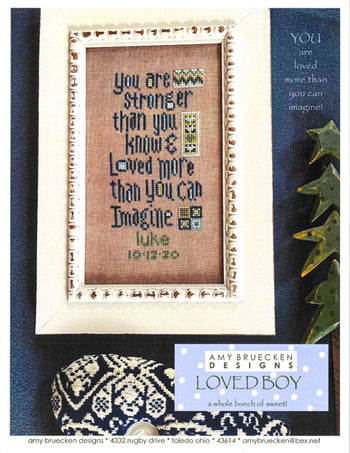 YOU
are
loved
more than
you can
imagine!
You are
stronger
than you
know &
Loved More
than You can
Imagine
luke
10·12·20
AMY BRUECKEN
DESIGNS
LOVED BOY
a whole bunch of sweet!
amy bruecken designs * 4332 rugby drive * toledo ohio * 43614 * amybruecken@bex.net